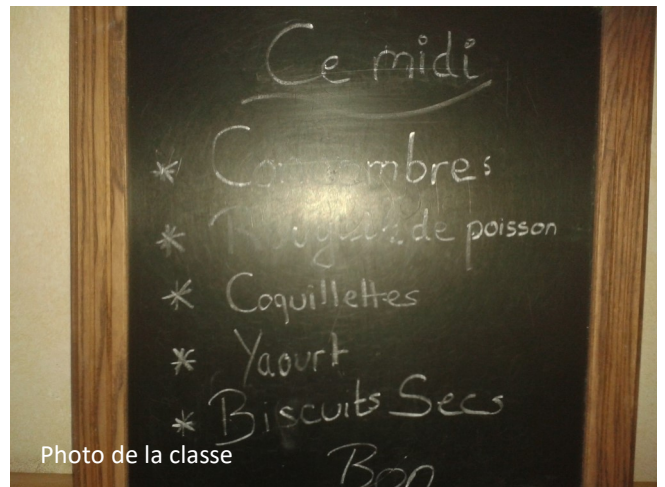 Ce midi
* Concombres
* de poisson
* Coquillettes
* Yaourt
* Biscuits Secs
Bon
Photo de la classe